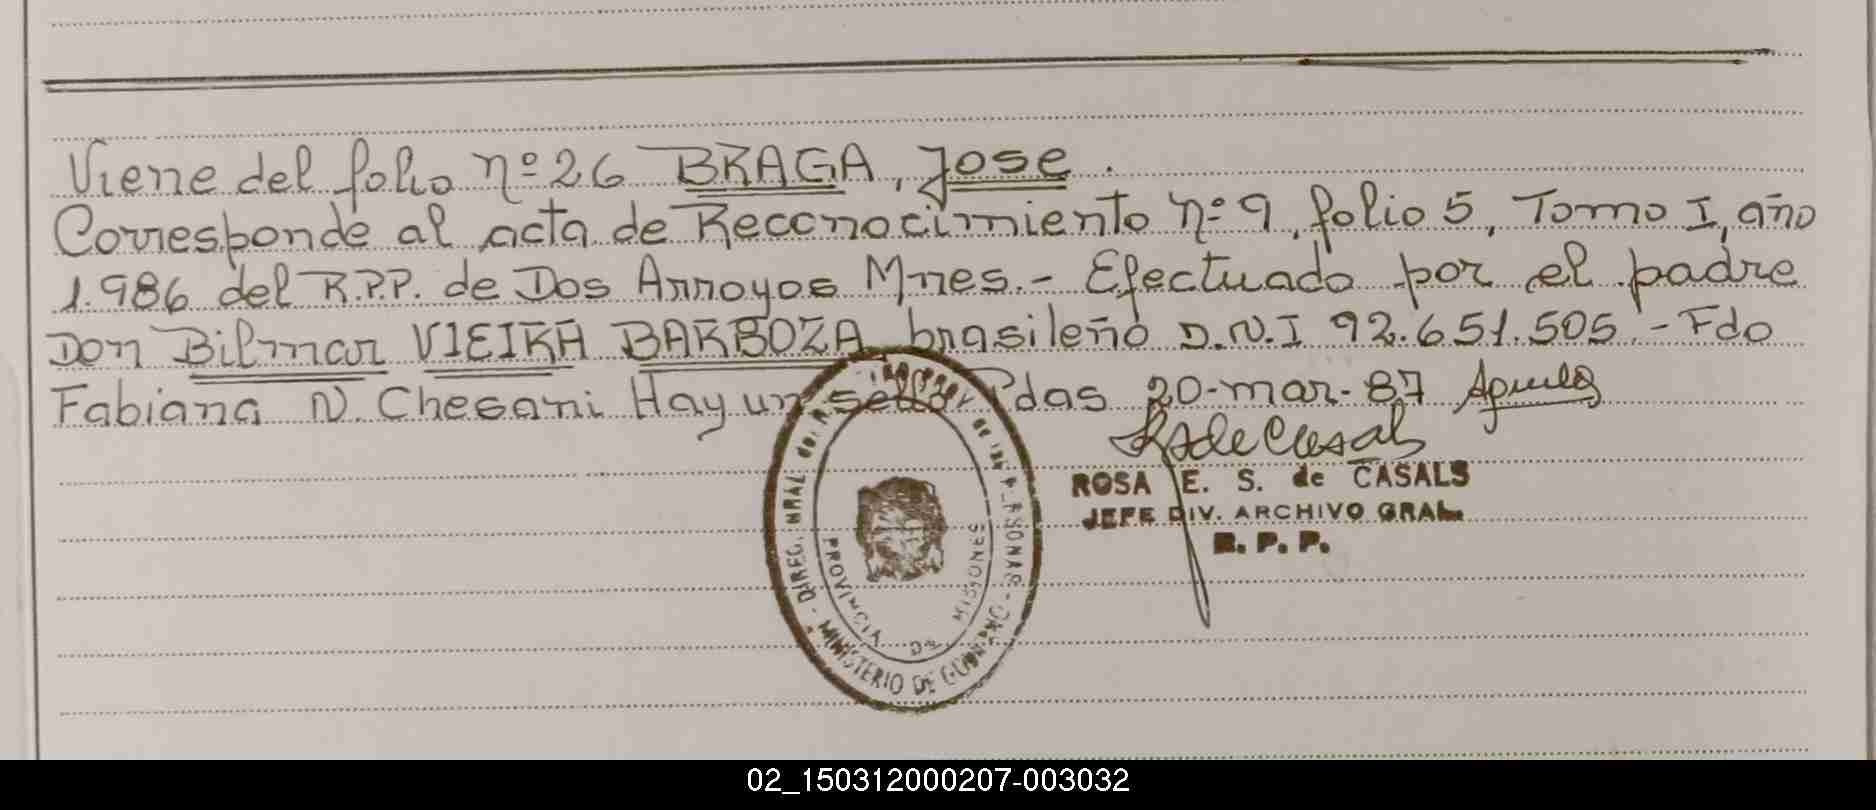 Viene del folio nº 26 BRAGA, Jose.
Corresponde al acta de Reconocimiento nº 9, folio 5, Tomo I, año
1.986 del R.P.P. de Dos Arroyos Mnes.- Efectuado por el padre
Don Bilmar VIEIRA BARBOZA, brasileño D.N.I 92.651.505.- Fdo
Fabiana N. Chesani Hay un sello. Pdas 20-mar-87
ROSA E. S. de CASALS
JEFE DIV. ARCHIVO GRAL.
R. P. P.
PROVINCIA DE MISIONES
MINISTERIO DE GOBIERNO
02_150312000207-003032